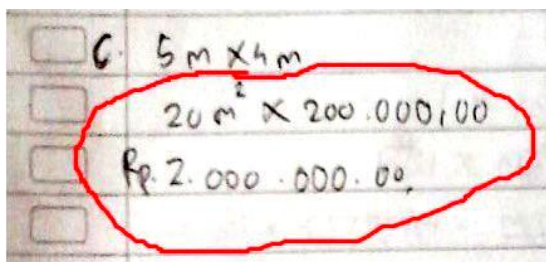 C. 5 m x 4 m
20 m² x 200.000,00
Rp. 2.000.000.00,